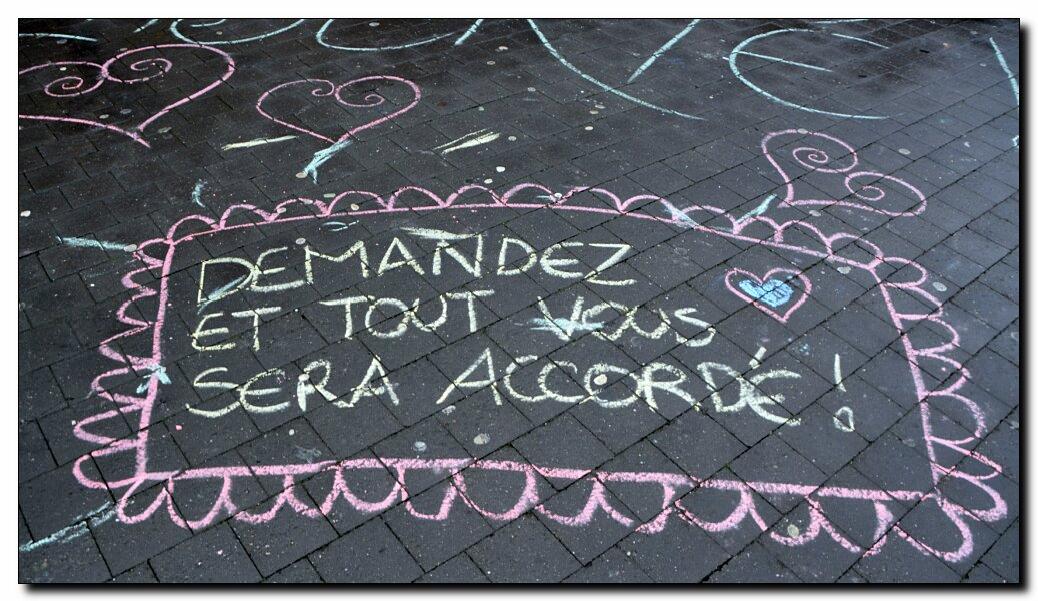 DEMANDEZ
ET TOUT VOUS
SERA ACCORDÉ!